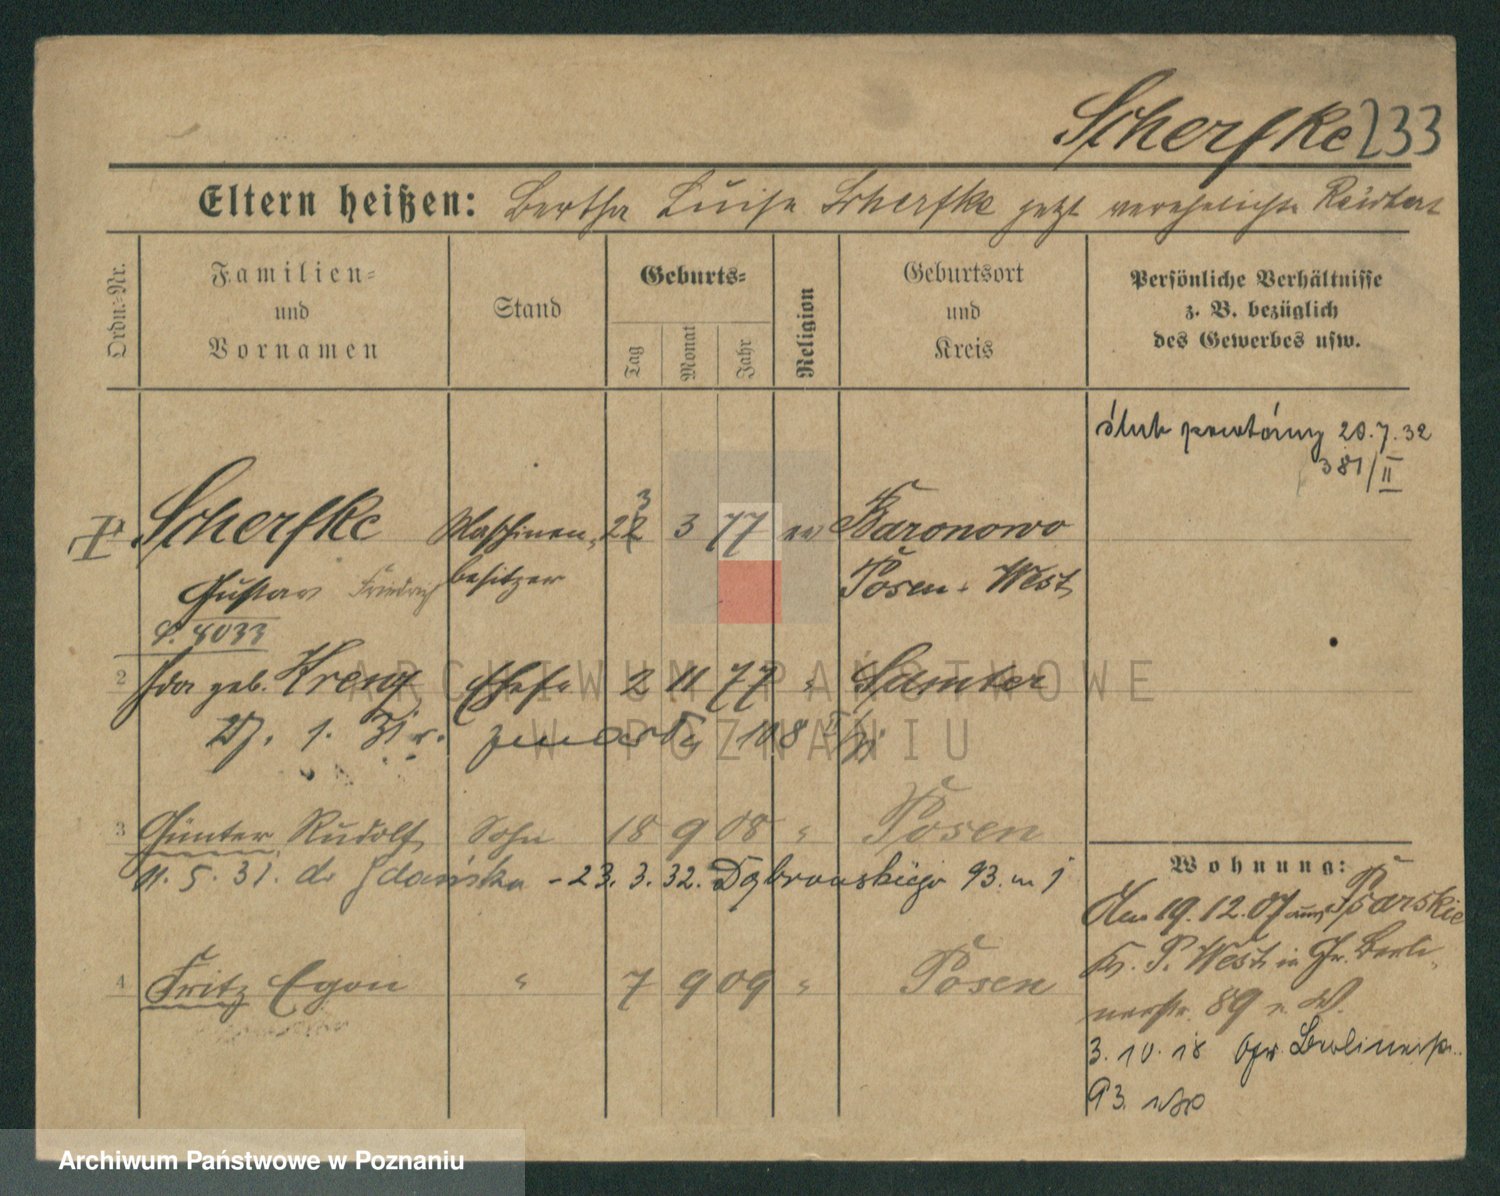 Scherfke 233
Eltern heißen: Bertha Luise Scherfke jetzt verehelichte
Ordn.-Nr.
Familien- und Vornamen
Stand
Geburts-
Tag
Monat
Jahr
Religion
Geburtsort und Kreis
Persönliche Verhältnisse z. B. bezüglich des Gewerbes usw.
ślub powtórny 20.7.32
381/II
Scherfke Maschinen- 22 3 3 77 ev Baronowo
Gustav Friedrich besitzer Posen-West
2 Ida geb. Krenz Ehefr 2 11 77 " Samter
27. 1. 31 r. zmarła
3 Günter Rudolf Sohn 18 9 08 " Posen
11. 5. 31. do Gdańska - 23. 3. 32. Dąbrowskiego 93. m 1
4 Fritz Egon " 7 9 09 " Posen
Wohnung:
19.12.07 aus Psarskie
Kr. P. West in Gr. Berli-
nerstr. 89 v. W.
3.10.18 Berlinerstr.
93.
ARCHIWUM PAŃSTWOWE
W POZNANIU
Archiwum Państwowe w Poznaniu